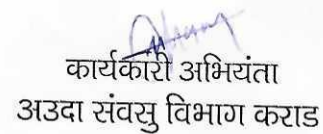 कार्यकारी अभियंता
अउदा संवसु विभाग कराड